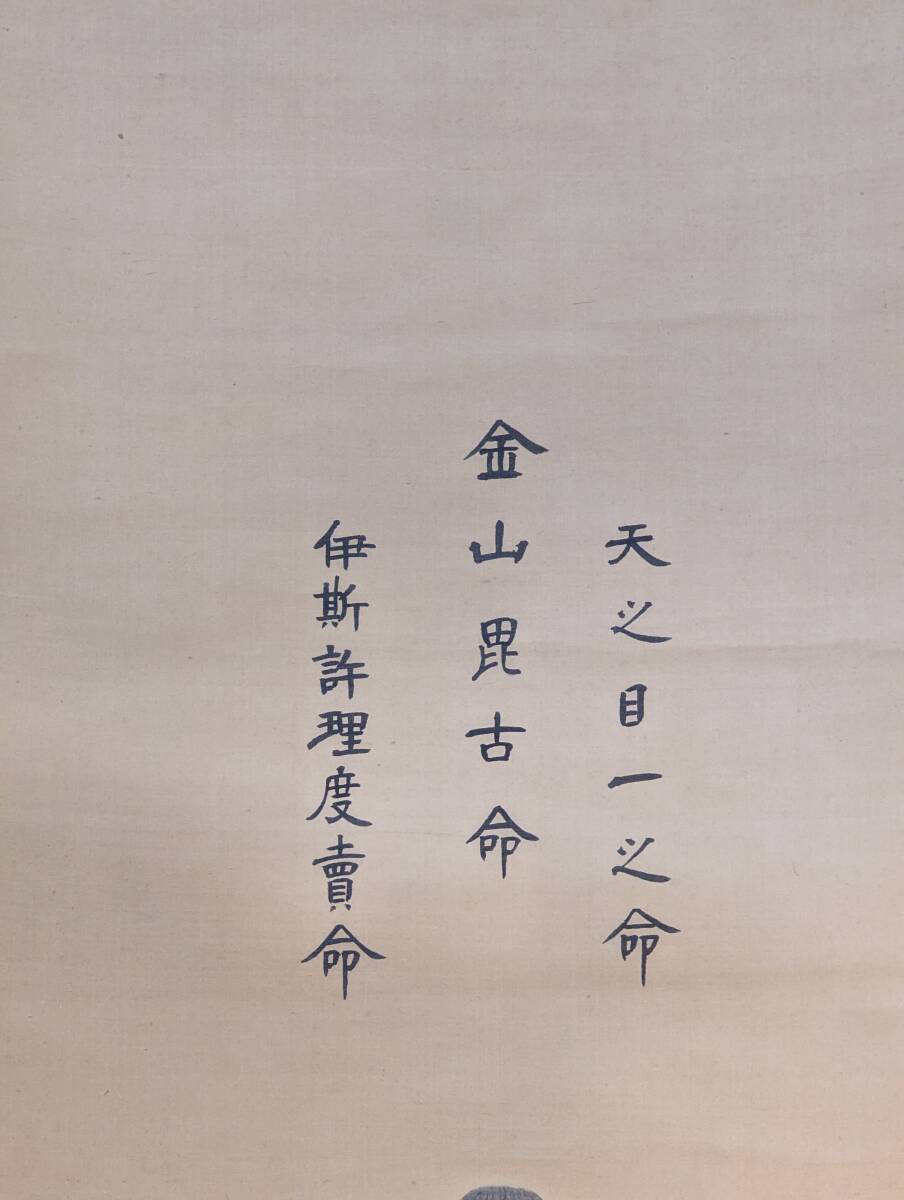 天之目一之命
金山毘古命
伊斯許理度賣命